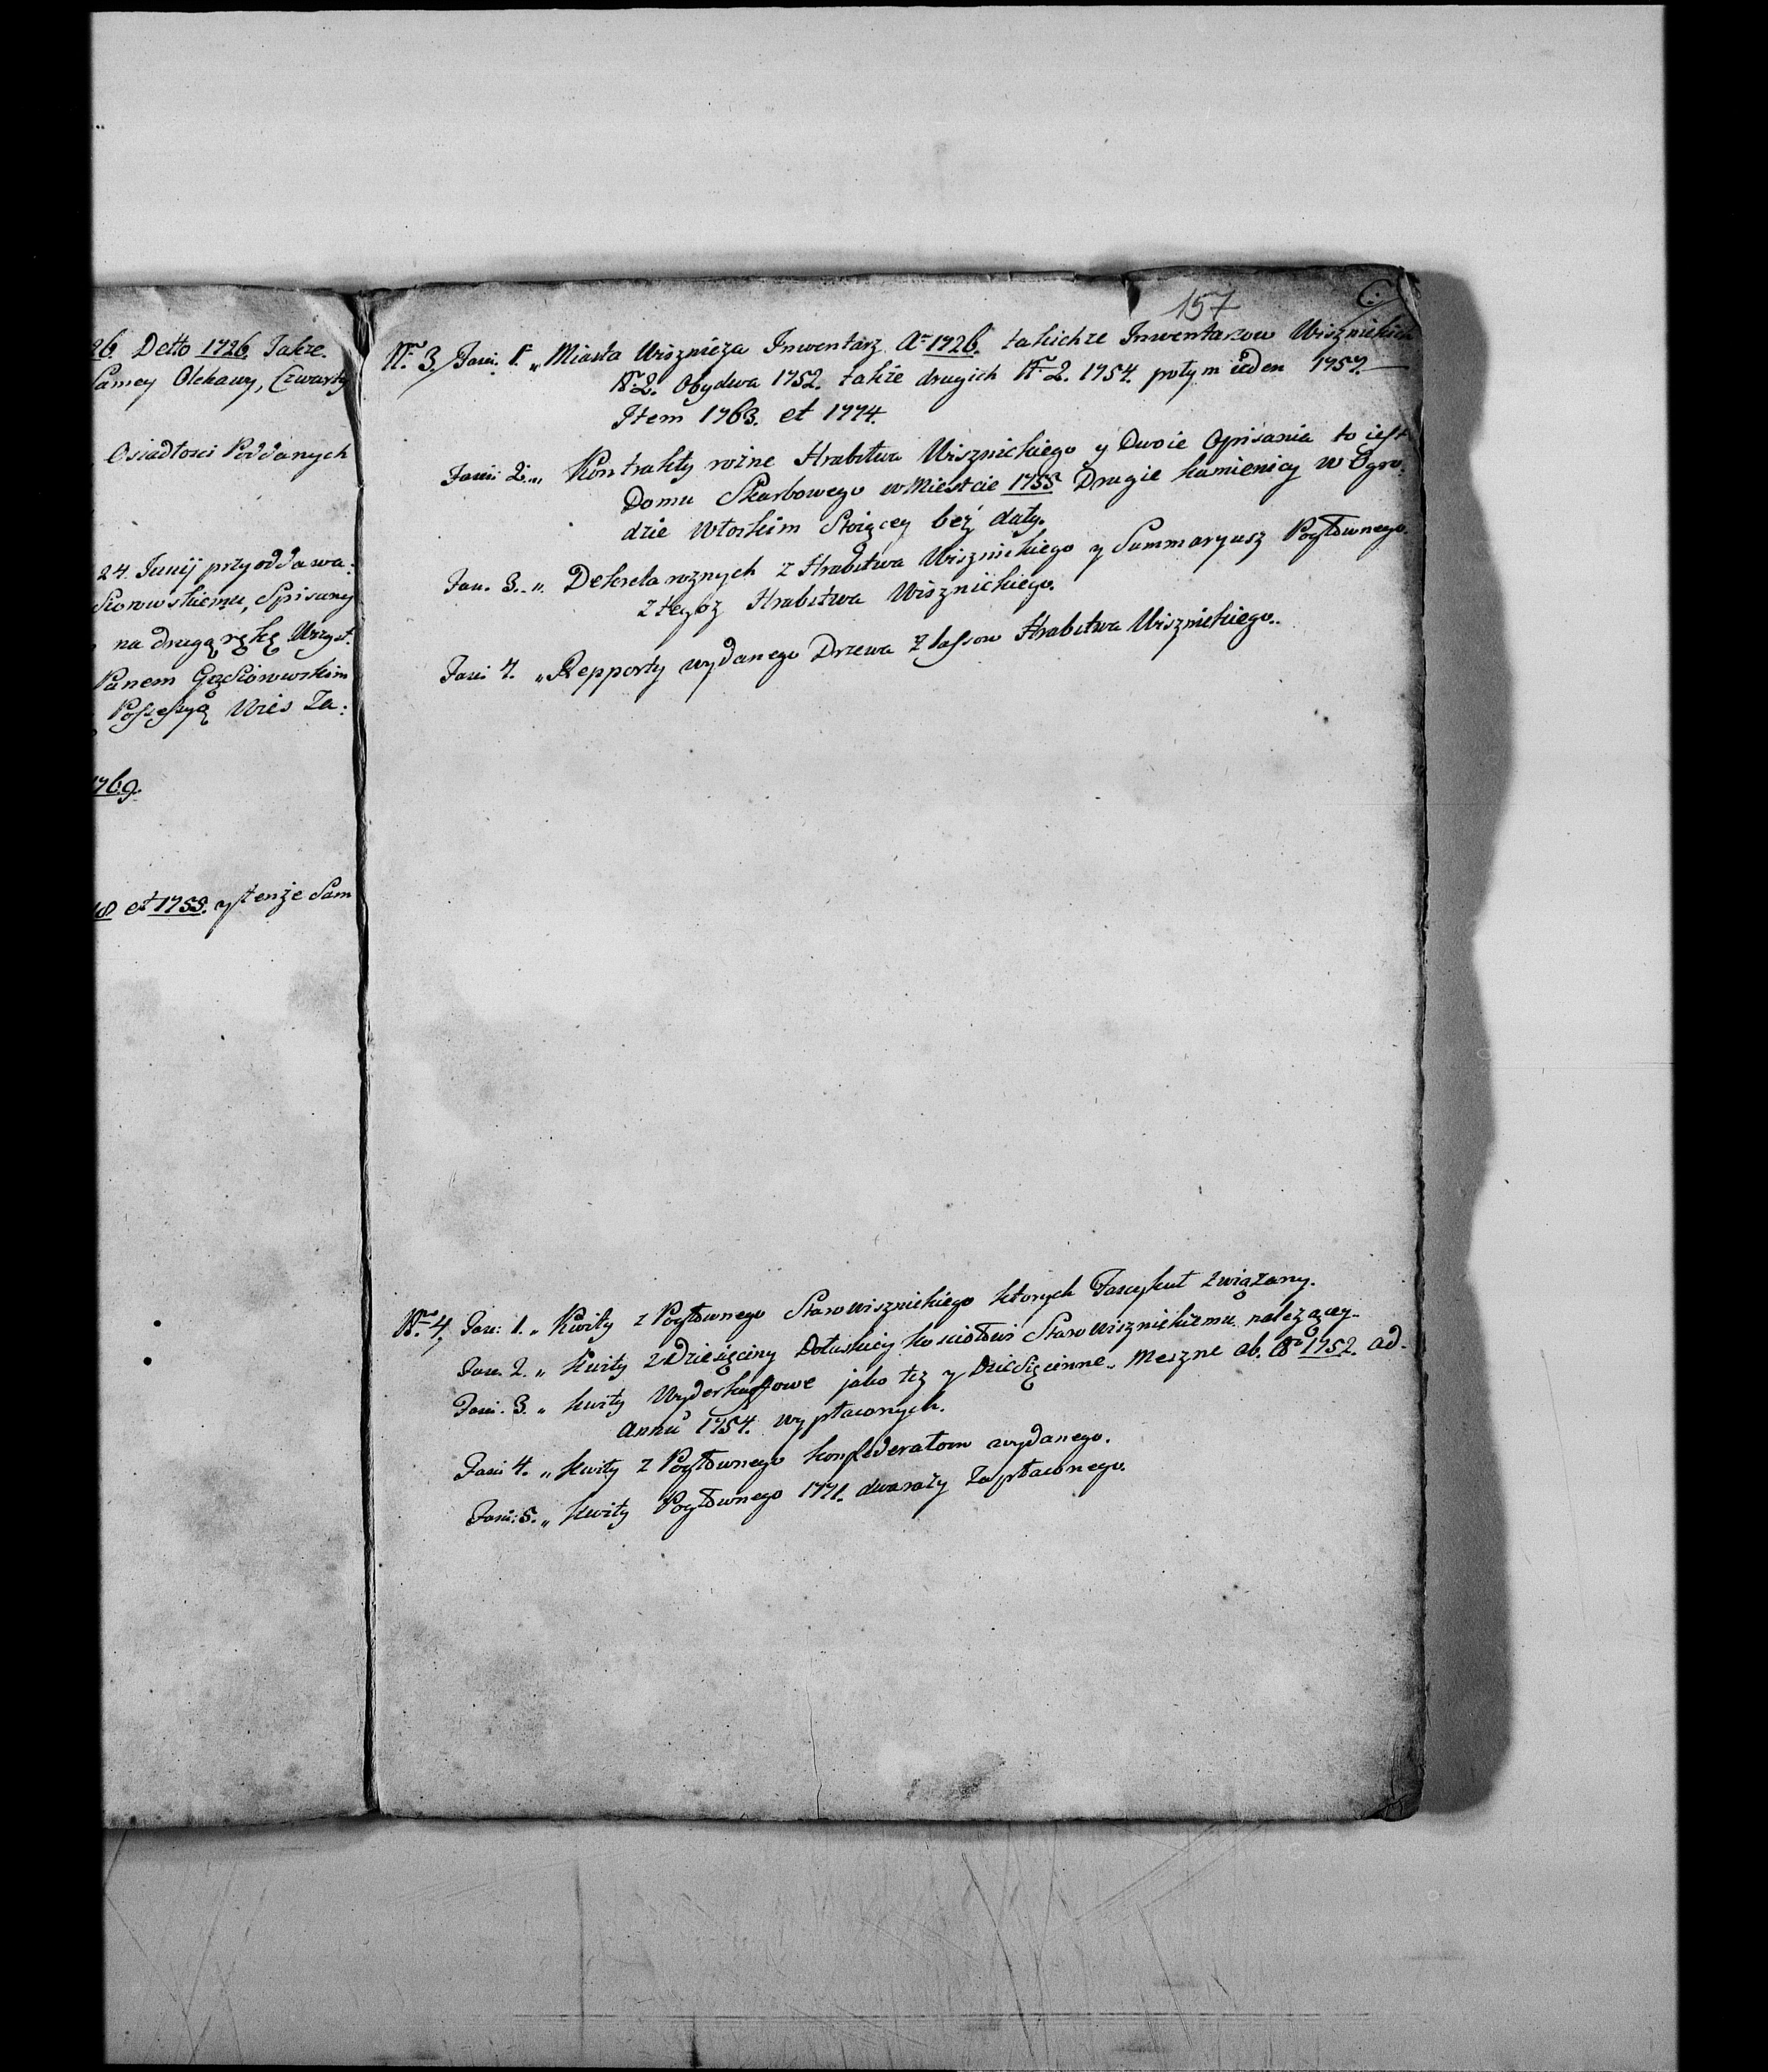 26. Detto 1726. Także.
Samey Olchawy, Czwarty
Osiadłosci Poddanych
24. Junij przy oddawa:
Siorowskiemu, Spisany
na drugą rękę Urząt.
Panem Gąsiorowskim
Possessyą Wies Za:
1769.
8 et 1753. y tenże Sam
157
C:
Nro 3. Fasci. 1. „ Miasta Wisznicza Inwentarz Ao 1726. takichze Inwentarzow Wisznickich
Nro 2. Obydwa 1752. także drugich Nro 2. 1754. potym ieden 1757.
Item 1763. et 1774.
Fasci: 2. „ Kontrakty rożne Hrabstwa Wisznickiego y Dwoie Opisania to iest
Domu Skarbowego w Miescie 1755 Drugie kamienicy w Ogro:
dzie Włoskim Stoiącey bez daty.
Fasc. 3. „ Dekreta roznych z Hrabstwa Wisznickiego y Summaryusz Pogłownego.
z tegoz Hrabstwa Wisznickiego.
Fasci 4. „ Repporty wydanego Drzewa z lassow Hrabstwa Wisznickiego.
Nro 4. Fasc: 1. „ Kwity z Pogłownego Starowisznickiego ktorych Fascykuł związany.
Fasc. 2. „ kwity z Dziesięciny Dołuskiey kosciołowi Starowisznickiemu należącey.
Fasci. 3. „ kwity Wyderkaffowe jako tez y Dziesięcinne. Meszne ab. Ao 1752. ad.
annu 1754. wypłaconych.
Fasci 4. „ kwity z Pogłownego konfederatom wydanego.
Fasci: 5. „ kwity Pogłownego 1771. dwa razy Zapłaconego.